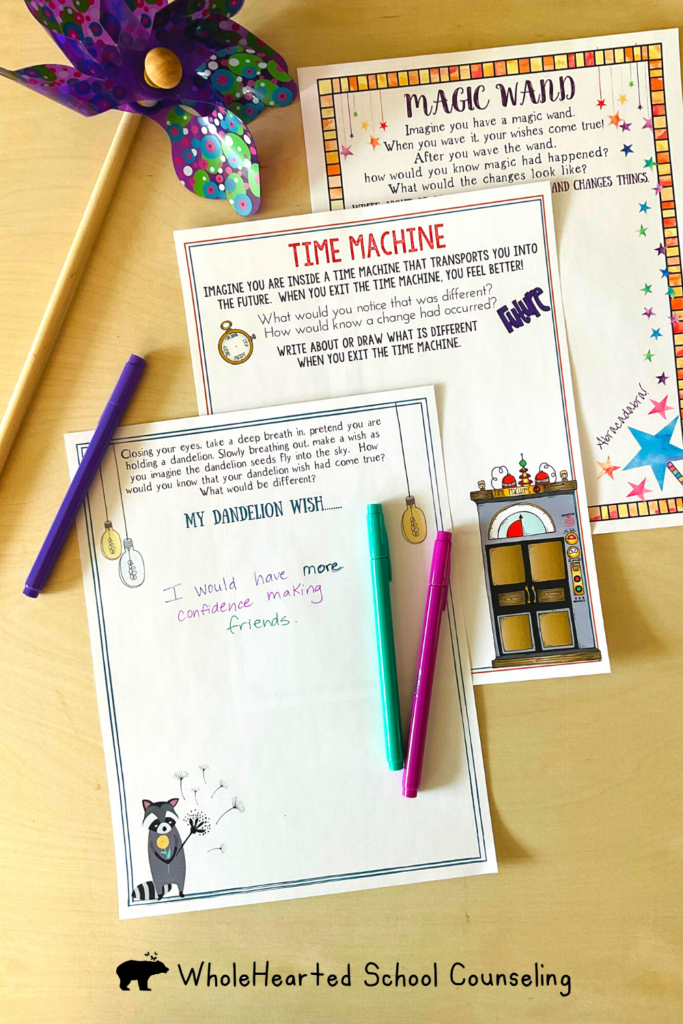 MAGIC WAND
Imagine you have a magic wand.
When you wave it, your wishes come true!
After you wave the wand,
how would you know magic had happened?
What would the changes look like?
AND CHANGES THINGS.
Abracadabra!
TIME MACHINE
IMAGINE YOU ARE INSIDE A TIME MACHINE THAT TRANSPORTS YOU INTO
THE FUTURE. WHEN YOU EXIT THE TIME MACHINE, YOU FEEL BETTER!
What would you notice that was different?
How would know a change had occurred?
Future
WRITE ABOUT OR DRAW WHAT IS DIFFERENT
WHEN YOU EXIT THE TIME MACHINE.
Closing your eyes, take a deep breath in, pretend you are
holding a dandelion. Slowly breathing out, make a wish as
you imagine the dandelion seeds fly into the sky. How
would you know that your dandelion wish had come true?
What would be different?
MY DANDELION WISH.......
I would have more
confidence making
friends.
WholeHearted School Counseling